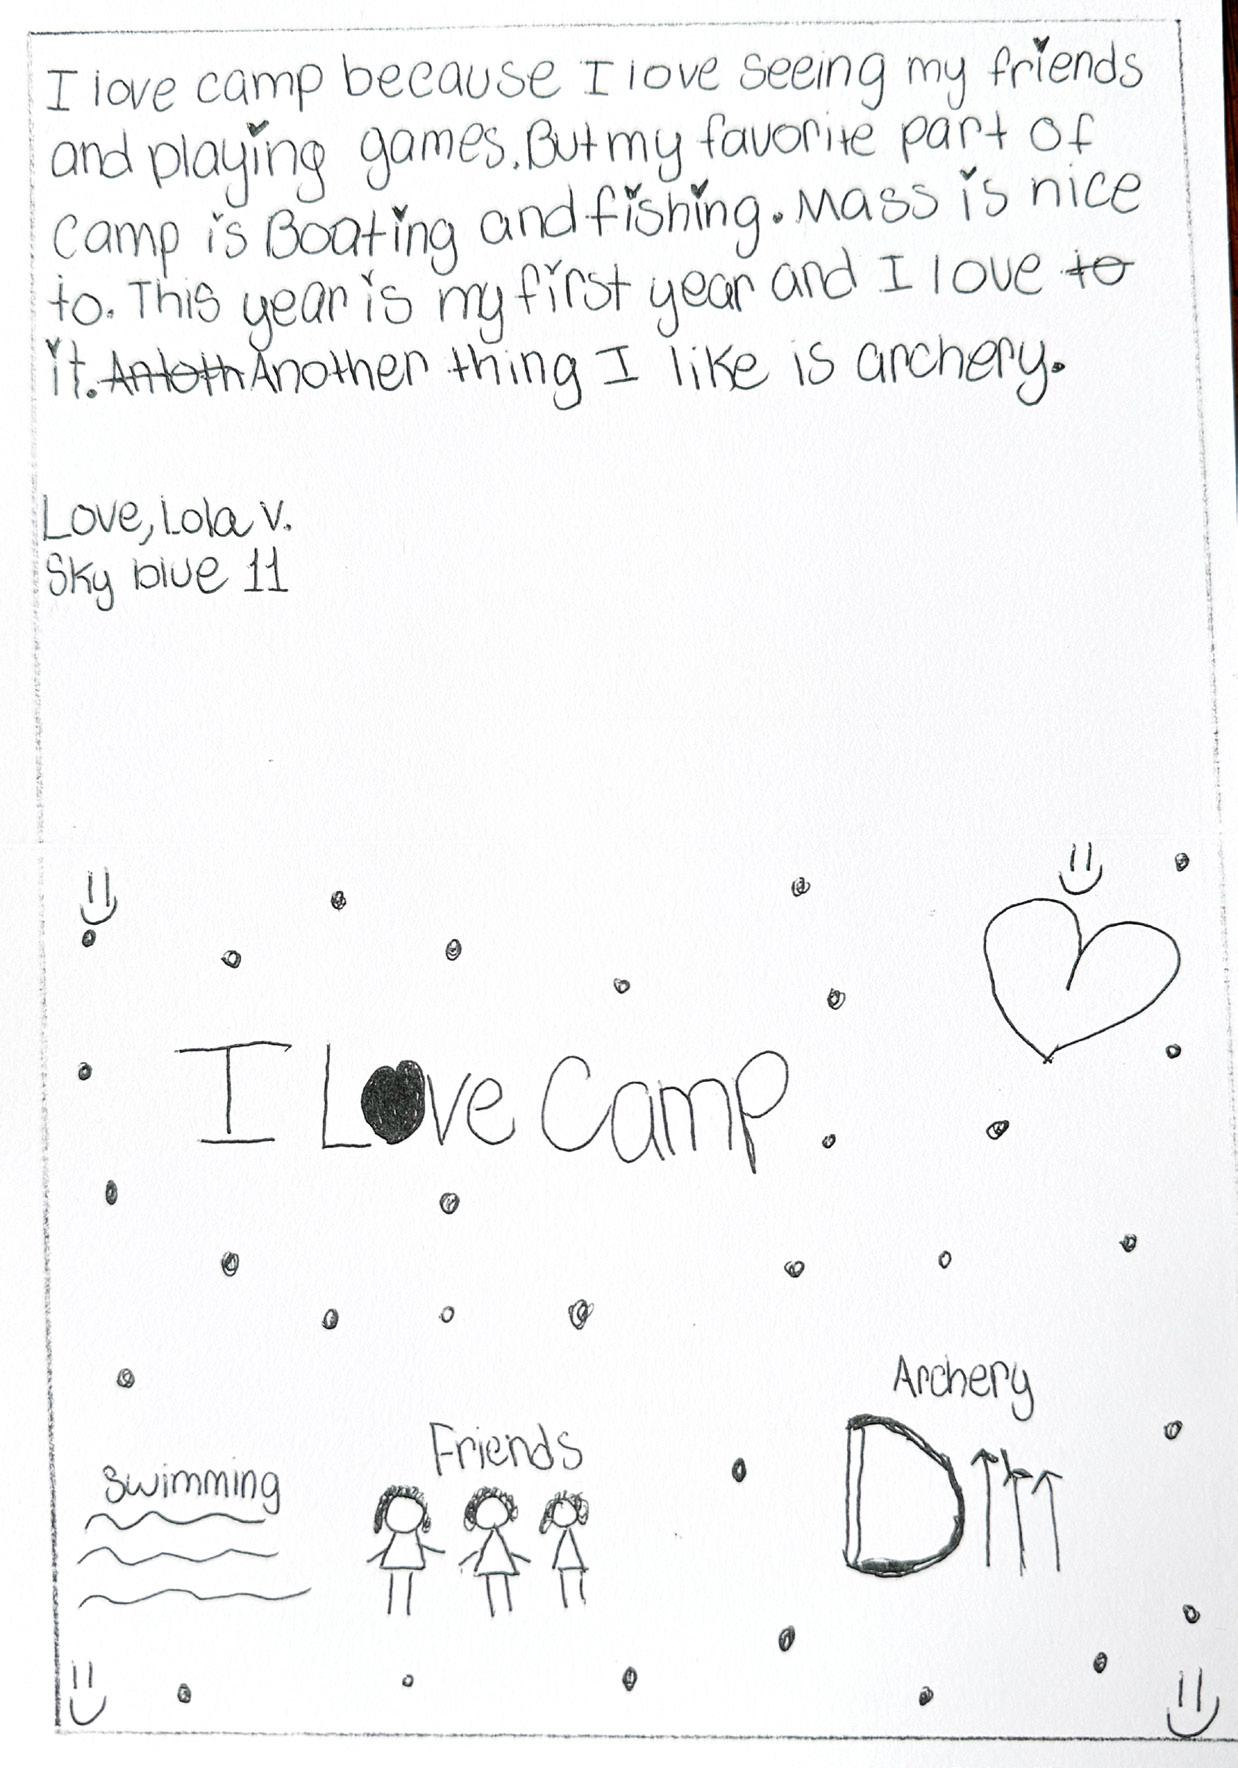 I love camp because I love seeing my friends
and playing games. But my favorite part of
Camp is Boating and fishing. Mass is nice
to. This year is my first year and I love to
it. Antoth Another thing I like is archery.
Love, Lola V.
Sky blue 11
I Love Camp
Archery
Friends
Swimming